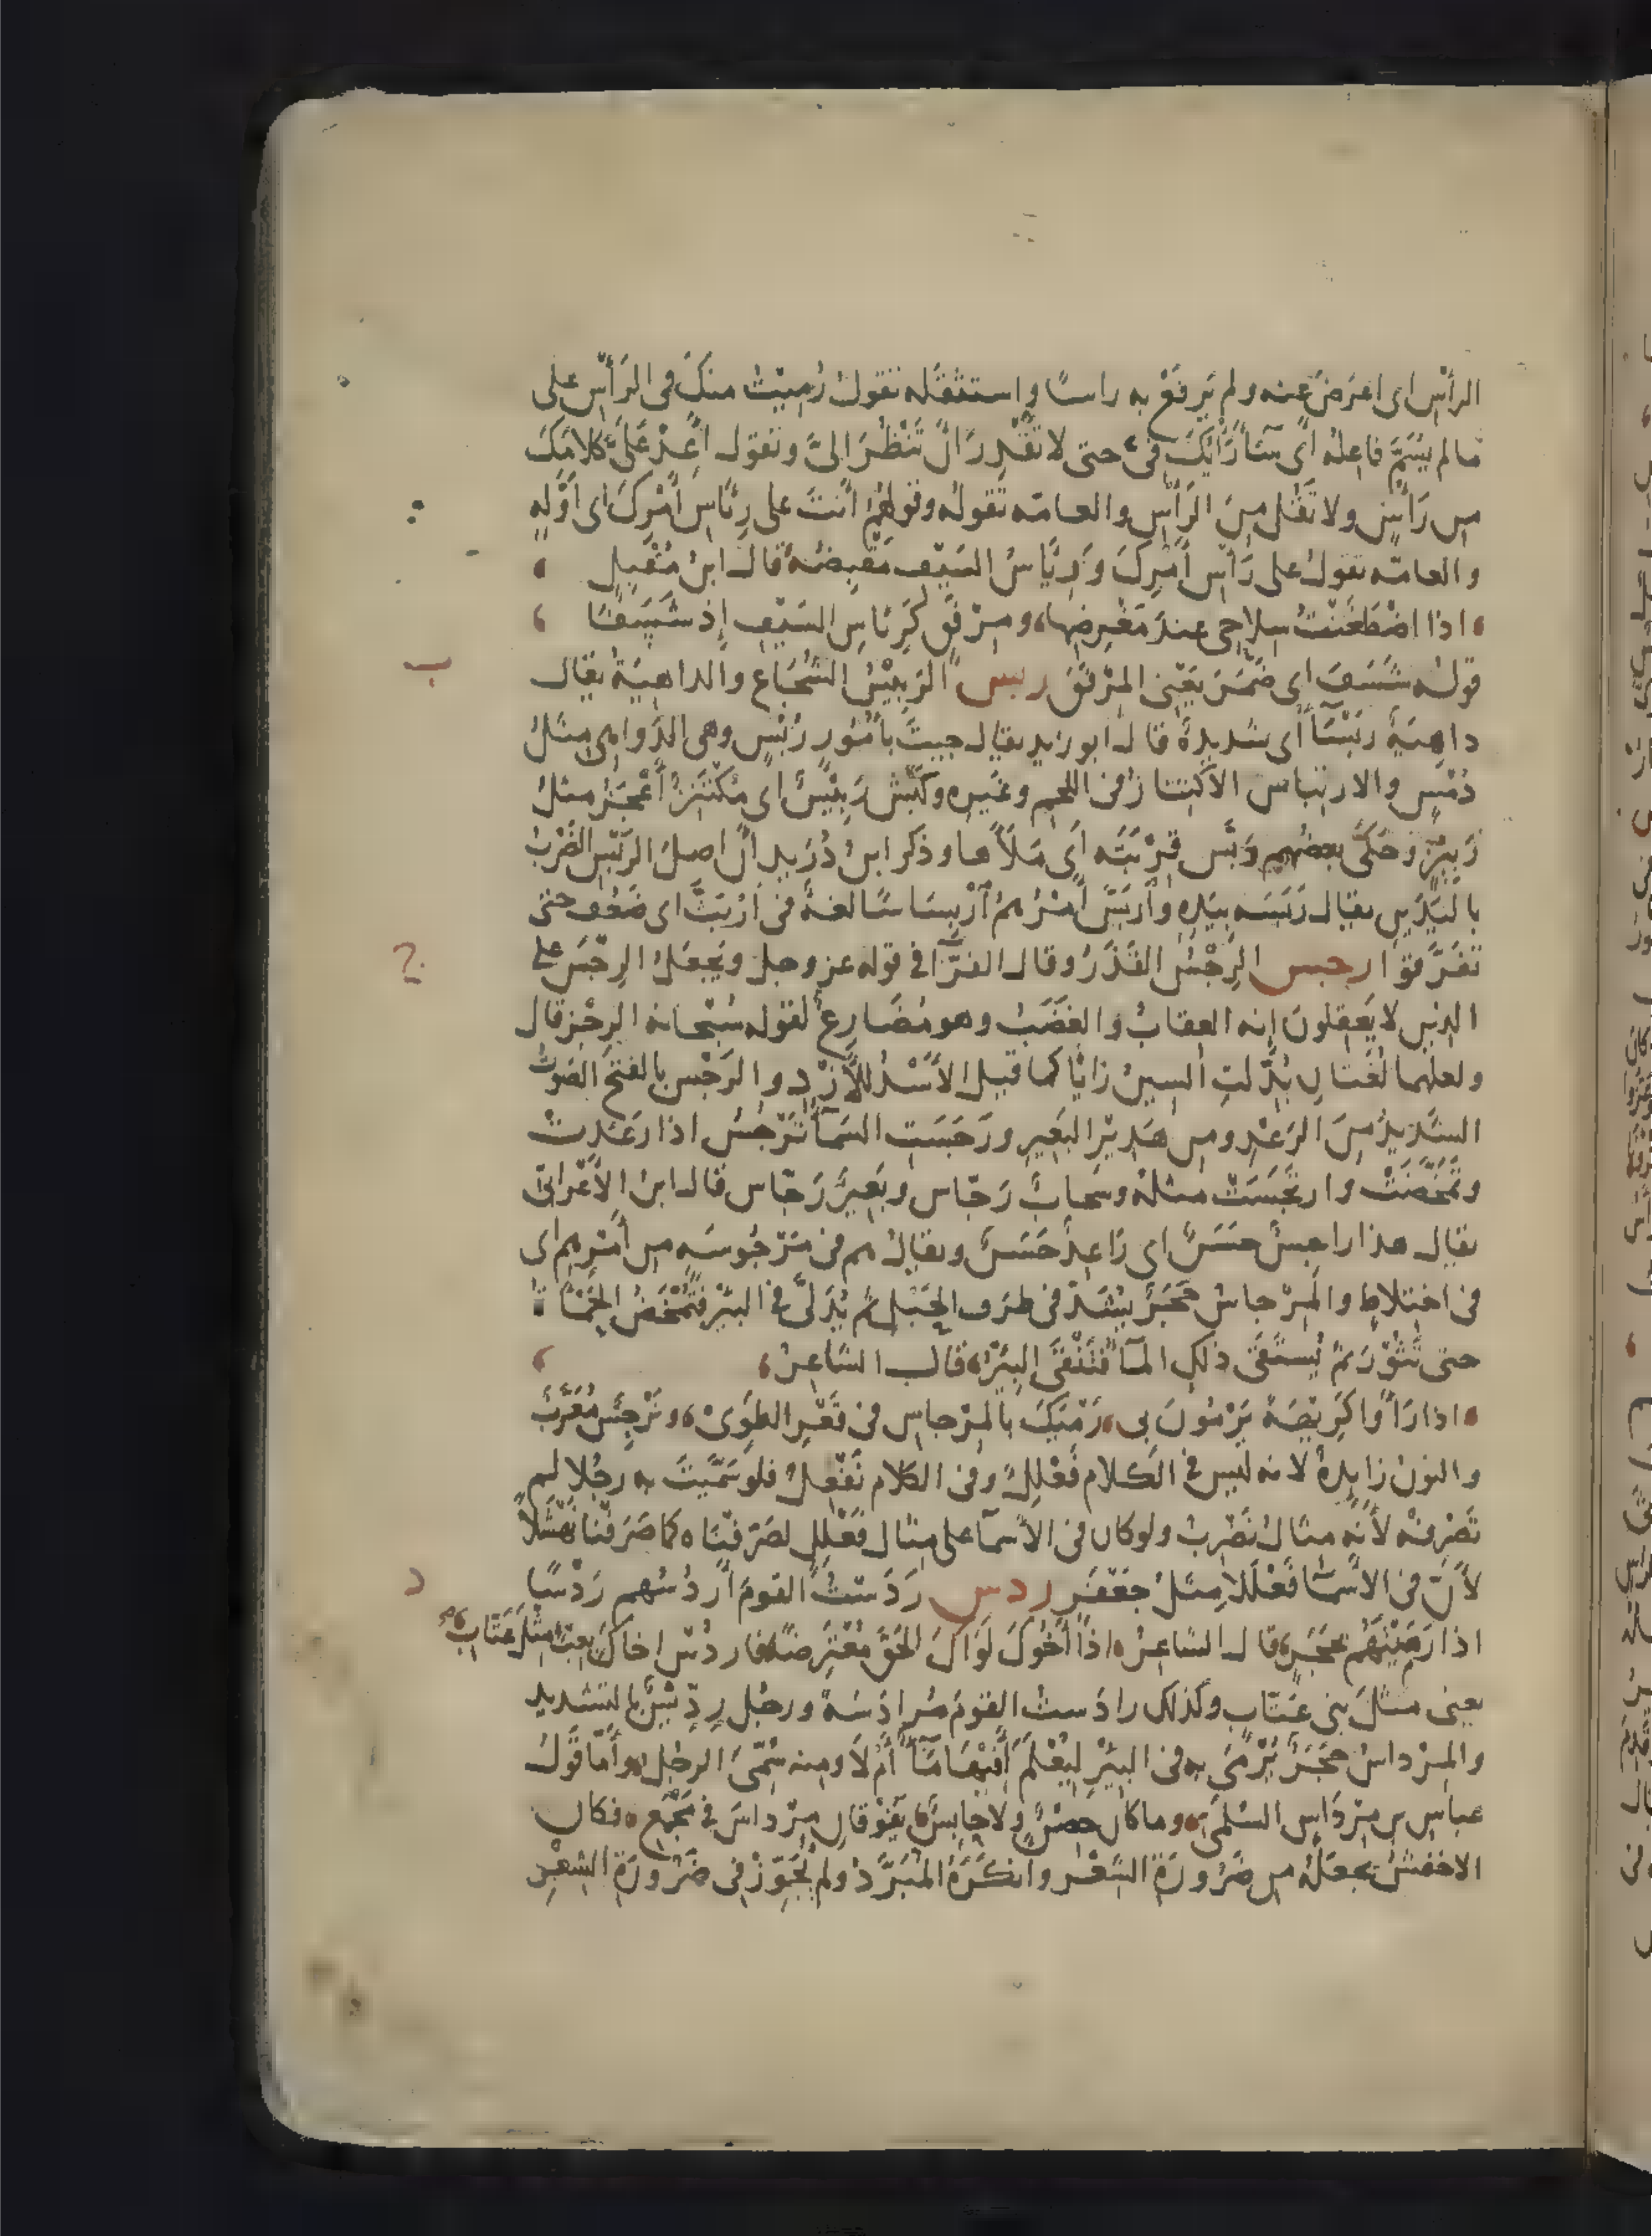 الرأس اى اعرض عنه ولم يرفع به راسا واستثقله تقول رميت منك فى الرأس على
مالم يسم فاعله أى سآء رأيك فىّ حتى لا تقدر أن تنظر الىّ وتقول أعد علىّ كلامك
من رأس ولا تقل من الرأس والعامه تقوله وقولهم أنت على رئاس أمرك اى أوله
والعامه تقول على رأس أمرك ورئاس السيف مقبضه قال ابن مقبل
اذا اضطغنت سلاحى عند مغرضها ومرفق كرئاس السيف إذ شسفا
قوله شسف اى ضمر يعنى المرفق ربس الربيس الشجاع والداهية يقال
داهية ربسآ أى شديدة قال ابو زيد يقال جيت بأمور ربس وهى الدواهى مثل
دمس والارتباس الاكتناز فى اللحم وغيره وكبش ربيس اى مكتنز أعجز مثل
ربيز وحكى بعضهم ربس قربته أى ملأها وذكر ابن دريد أن اصل الربس الضرب
باليدين يقال ربسه بيده وأربس أمرهم أربساسا لغة فى اربث اى ضعف حتى
تفرقوا رجس الرجس القذر وقال الفرآ فى قوله عز وجل ويجعل الرجس على
الذين لا يعقلون إنه العقاب والغضب وهو مضارع لقوله سبحانه الرجز قال
ولعلهما لغتان بدلت السين زايا كما قيل الأسد للأزد والرجس بالفتح الصوت
الشديد من الرعد ومن هدير البعير ورجست السمآ ترجس اذا رعدت
وتمخضت وارتجست مثله وسحاب رجاس وبعير رجاس قال ابن الأعرابى
يقال هذا راجس حسن اى راعد حسن ويقال هم فى مرجوسه من أمرهم اى
فى اختلاط والمرجاس حجر يشد فى طرف الحبل ثم يدلى فى البئر فتمخض الحمأة
حتى تثور ثم يستقى ذلك المآ فتنقى البئر قال الشاعر
اذا رأوا كريهة يرمون بى رميك بالمرجاس فى قعر الطوى ونرجس معرب
والنون زايدة لانه ليس فى الكلام فعلل وفى الكلام نفعل فلو سميت به رجلا لم
تصرفه لأنه مثال نضرب ولو كان فى الاسمآ على مثال فعلل لصرفناه كما صرفنا نهشلا
لأن فى الأسمآ فعللا مثل جعفر ردس ردست القوم أردسهم ردسا
اذا رميتهم بحجر قال الشاعر اذا أخوك لواك الحق معترضا فاردس اخاك بعبء مثل عتاب
يعنى مثل بنى عتاب وكذلك رادست القوم مرادسة ورجل رديس بالتشديد
والمرداس حجر يرمى به فى البئر ليعلم أفيها مآ أم لا ومنه سمى الرجل وأما قول
عباس بن مرداس السلمى وما كان حصن ولا حابس يفوقان مرداس فى مجمع فكان
الاخفش يجعله من ضرورة الشعر وانكره المبرد ولم يجوز فى ضرورة الشعر
ب
ج
د